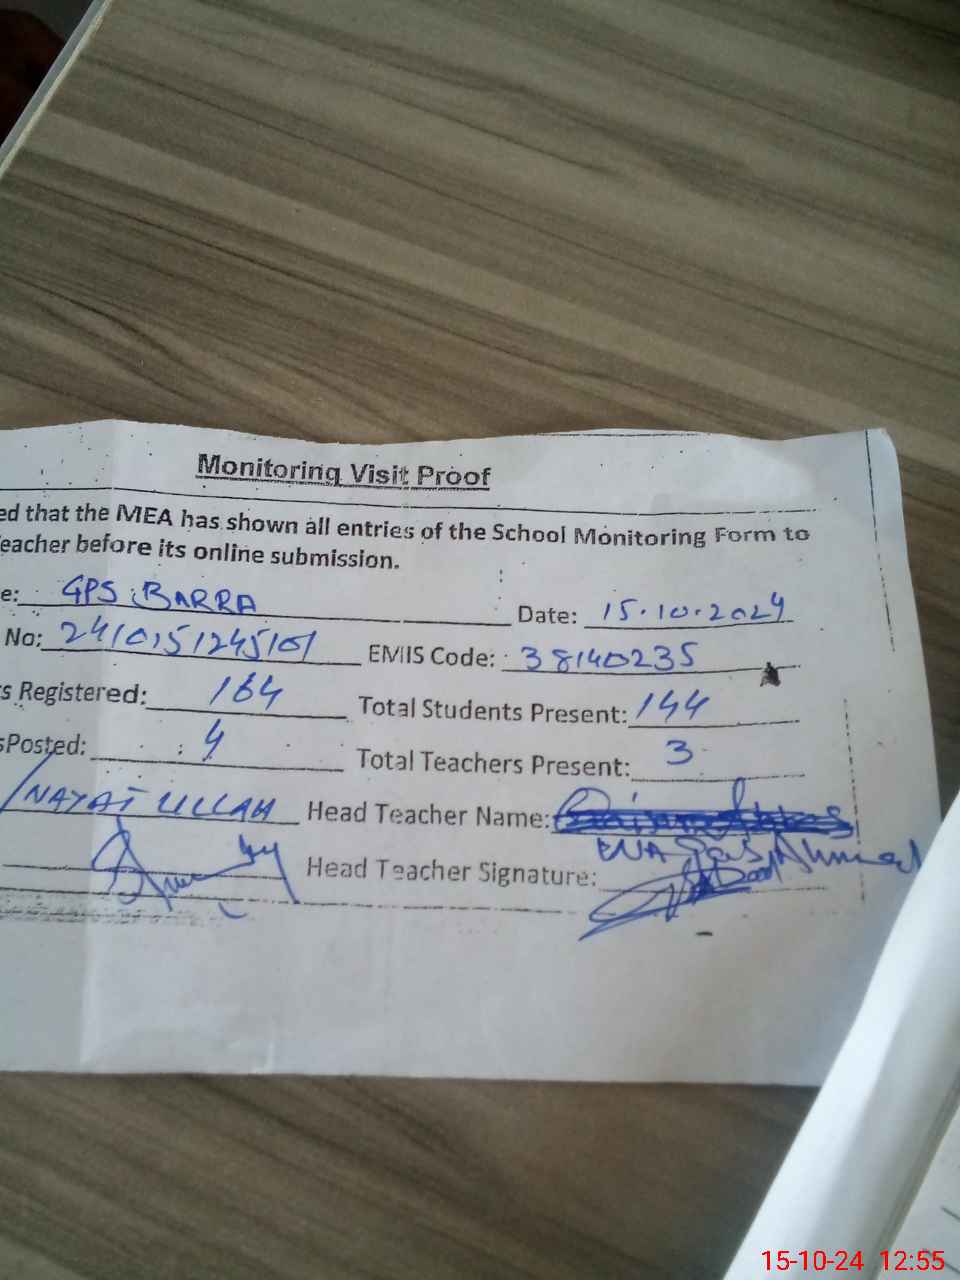 Monitoring Visit Proof
ed that the MEA has shown all entries of the School Monitoring Form to
eacher before its online submission.
e: GPS BARRA Date: 15.10.2024
No: 2410151245101 EMIS Code: 38140235
s Registered: 164 Total Students Present: 144
sPosted: 4 Total Teachers Present: 3
NAYAT ULLAH Head Teacher Name:
Ahmad
Head Teacher Signature:
15-10-24 12:55